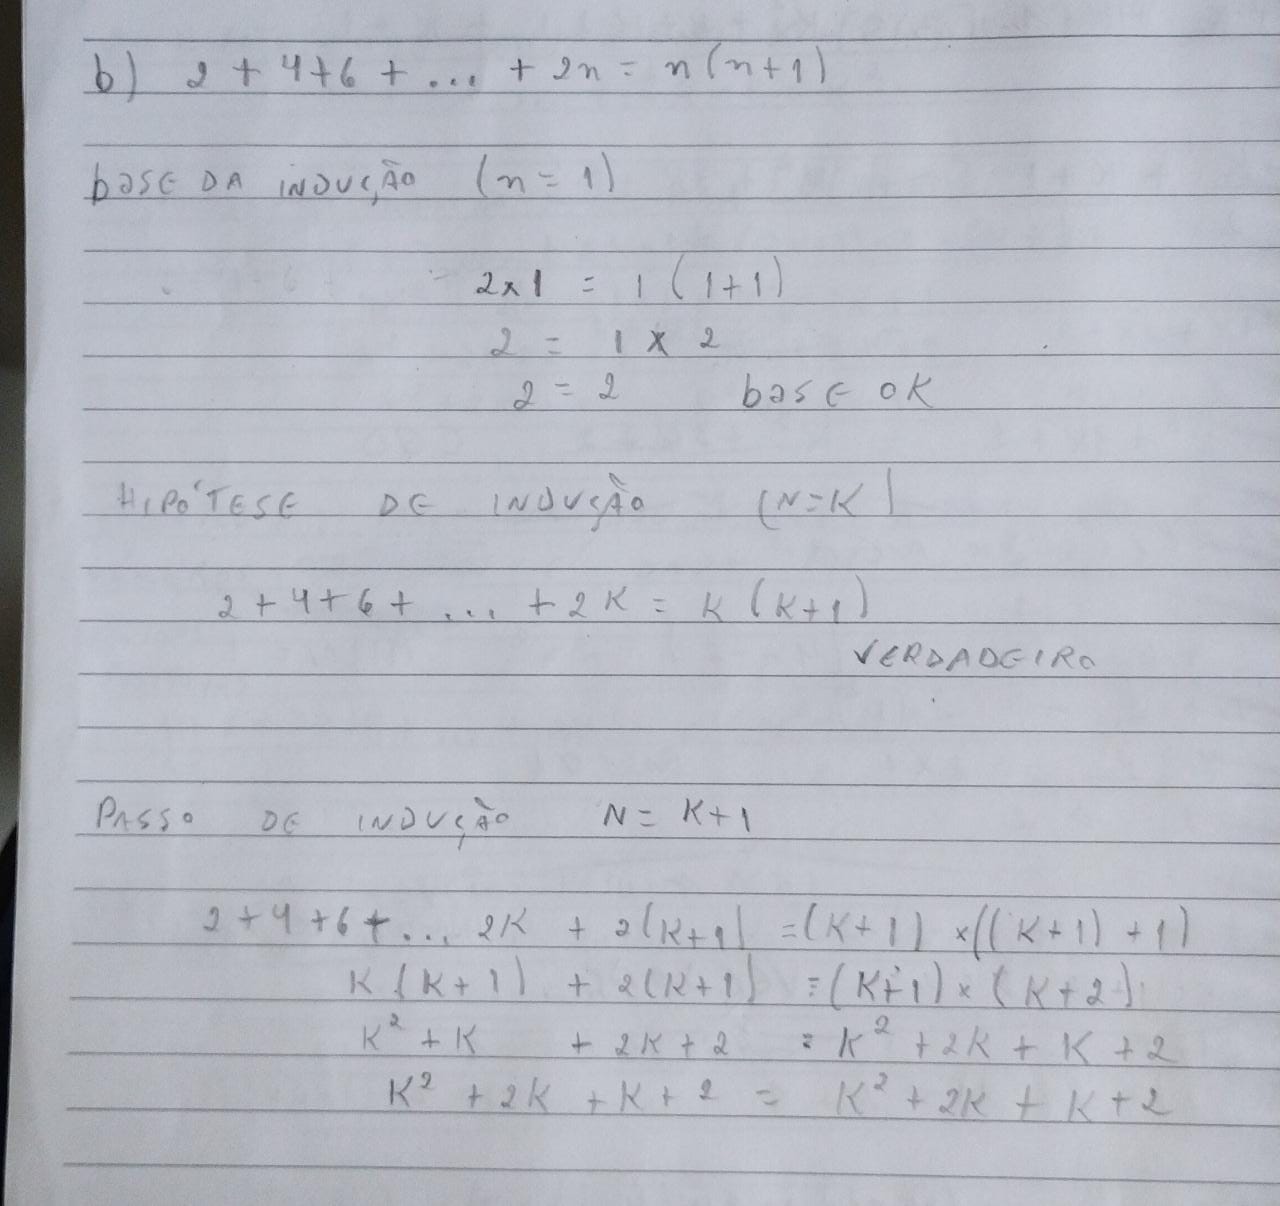 b) 2 + 4 + 6 + ... + 2n = n(n+1)
base DA INDUÇÃO (n = 1)
2x1 = 1 (1+1)
2 = 1 x 2
2 = 2 base OK
HIPÓTESE DE INDUÇÃO (N=K)
2 + 4 + 6 + ... + 2K = K (K+1)
VERDADEIRO
PASSO DE INDUÇÃO N = K+1
2 + 4 + 6 + ... 2K + 2(K+1) = (K+1) x ((K+1) + 1)
K (K+1) + 2(K+1) = (K+1) x (K+2)
K² + K + 2K + 2 = K² + 2K + K + 2
K² + 2K + K + 2 = K² + 2K + K + 2